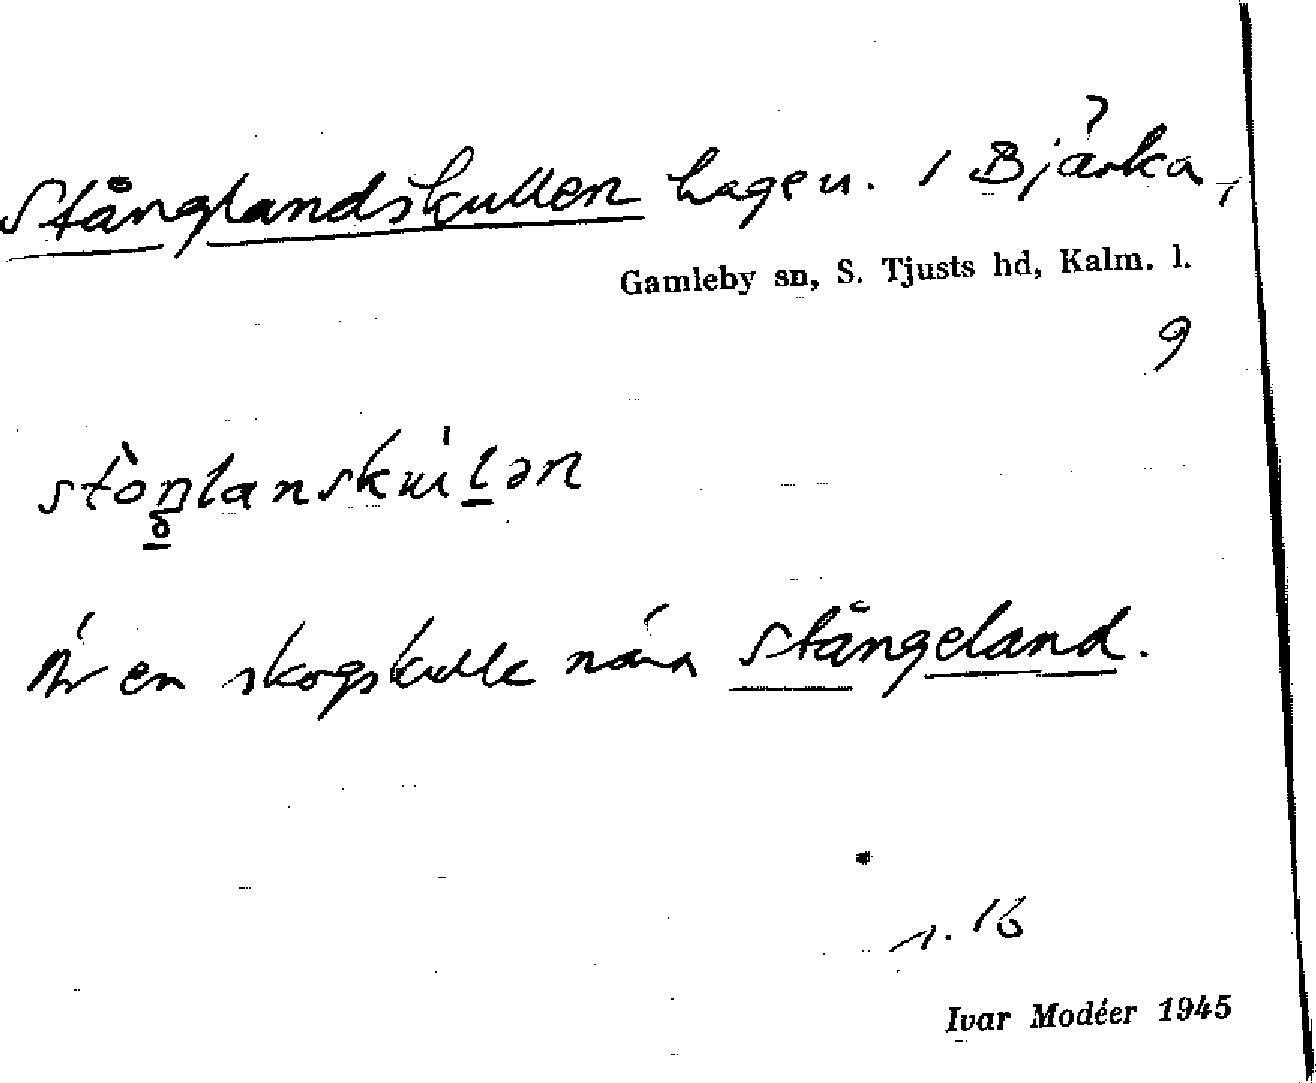 Stånglandskullen hagen. i Bjärka,
Gamleby sn, S. Tjusts hd, Kalm. l.
9
Är en skogskulle nära Stångeland.
s. 16
Ivar Modéer 1945